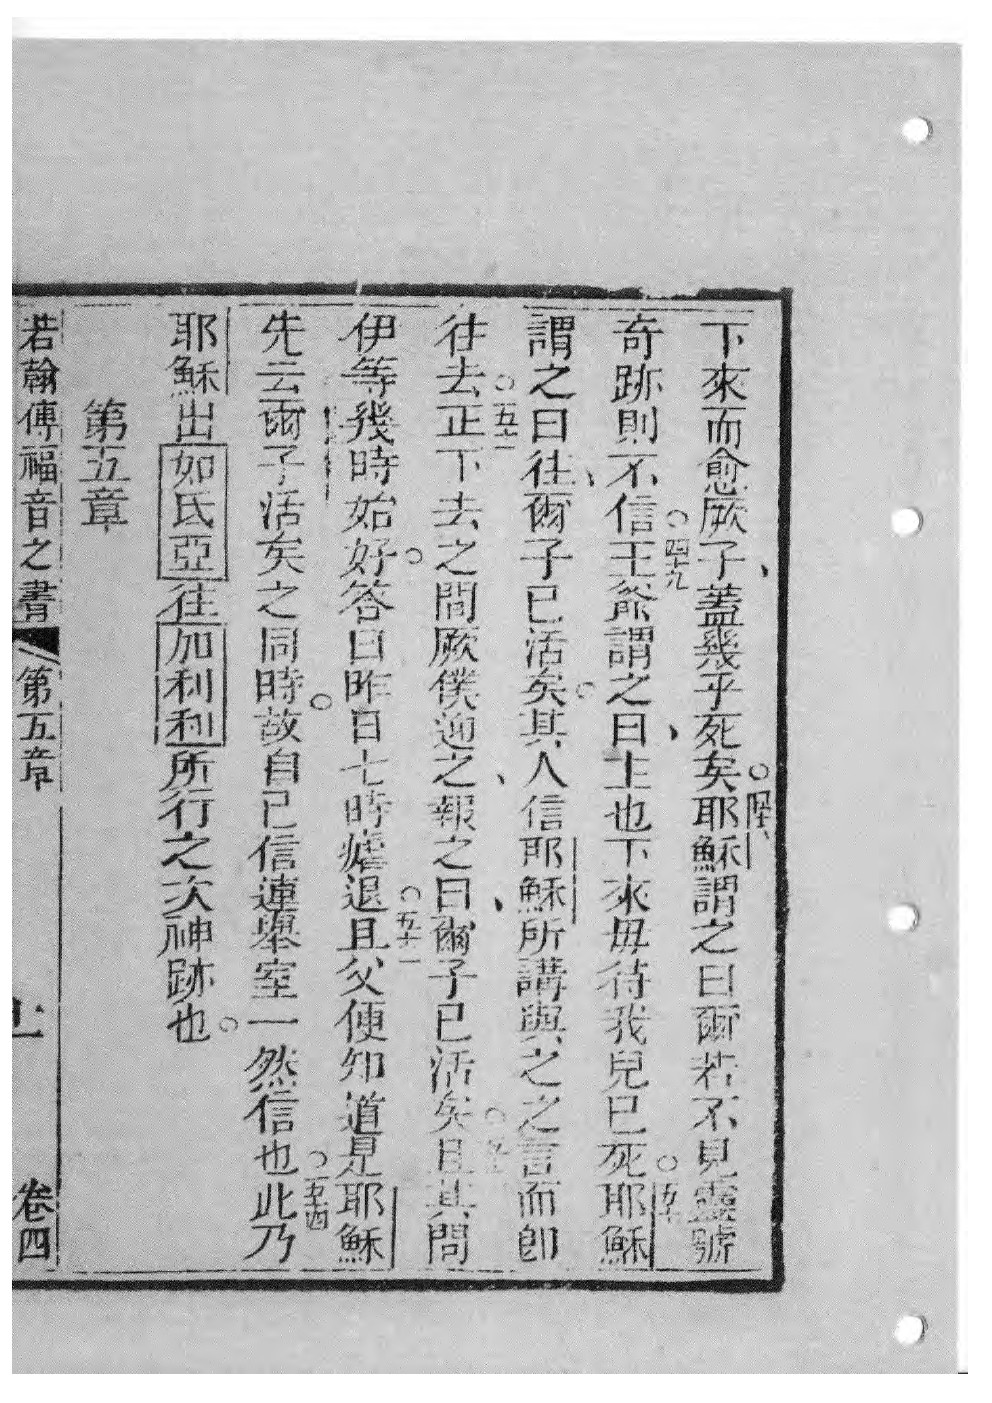 下來而愈厥子、蓋幾乎死矣○四十八耶穌謂之曰爾若不見靈號
奇跡則不信○四十九王爺謂之曰、主也下來毋待我兒已死○五十耶穌
謂之曰往、爾子已活矣○其人信耶穌所講與之之言而即
往去○五十一正下去之間厥僕迎之、報之曰、爾子已活矣○五十二且其問
伊等幾時始好○答曰昨日七時瘧退○五十三且父便知道是耶穌
先云爾子活矣之同時○故自己信連舉室一然信也○五十四此乃
耶穌出如氐亞往加利利所行之次神跡也○
第五章
若翰傳福音之書 第五章 卷四